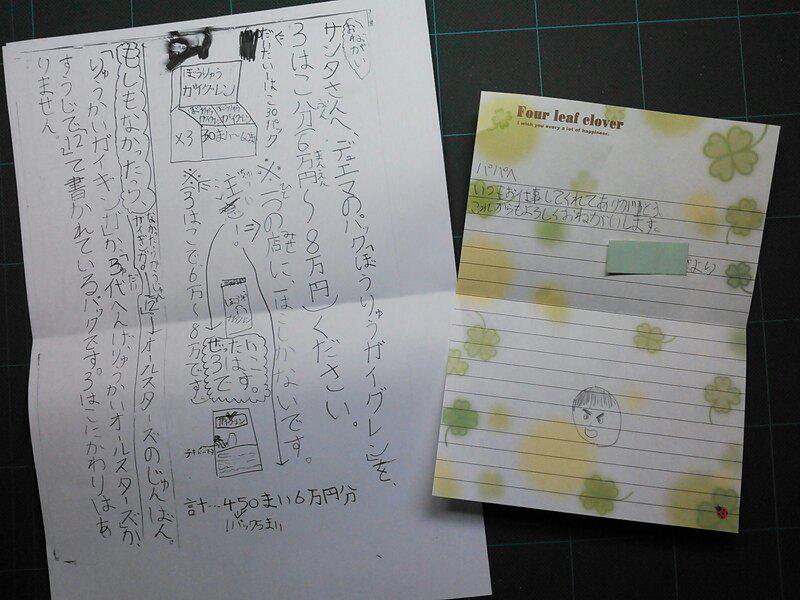 おねがい
サンタさんへ、デュエマのパック「ぼうりゅうガイグレン」を、
3はこ分(6万円〜8万円)ください。
だいたい一はこ30パック
※一つの店に、一はこしかないです。
ぼうりゅう
ガイグレン
×3
注意!
※3はこで6万〜8万です!
計…450まい6万円分
1パック5まい
もしもなかったら、
オールスターズのじゅんばん。
「りゅうかいガイギンガ」か、
オールスターズか、
すうじで「12」て書かれているパックです。3はこにかわりはあ
りません。
Four leaf clover
I wish you every a lot of happiness.
パパへ
いつもお仕事してくれてありがとう。
これからもよろしくおねがいします。
より